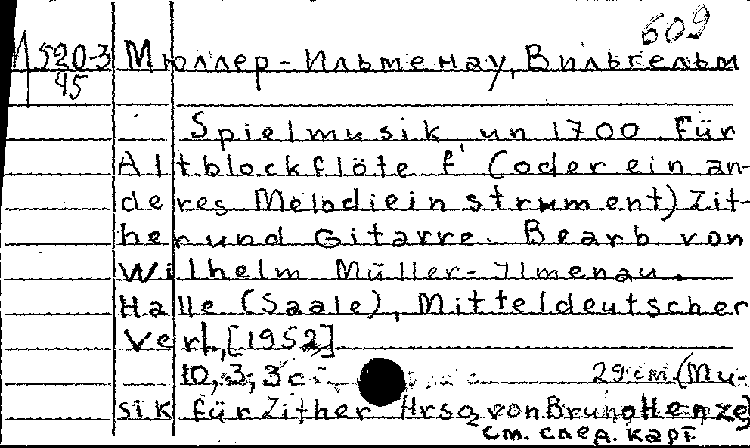 609
И 520-3 Мюллер-Ильменау, Вильгельм
45
Spielmusik un 1700 Für
Altblockflöte f' (oder ein an-
deres Melodieinstrument) Zit-
her und Gitarre. Bearb von
Wilhelm Müller-Ilmenau.
Halle (Saale), Mitteldeutscher
Verl, [1952]
10, 3, 3 c. 29 cm. (Mu-
sik für Zither Hrsg von Bruno Henze)
см. след. карт.